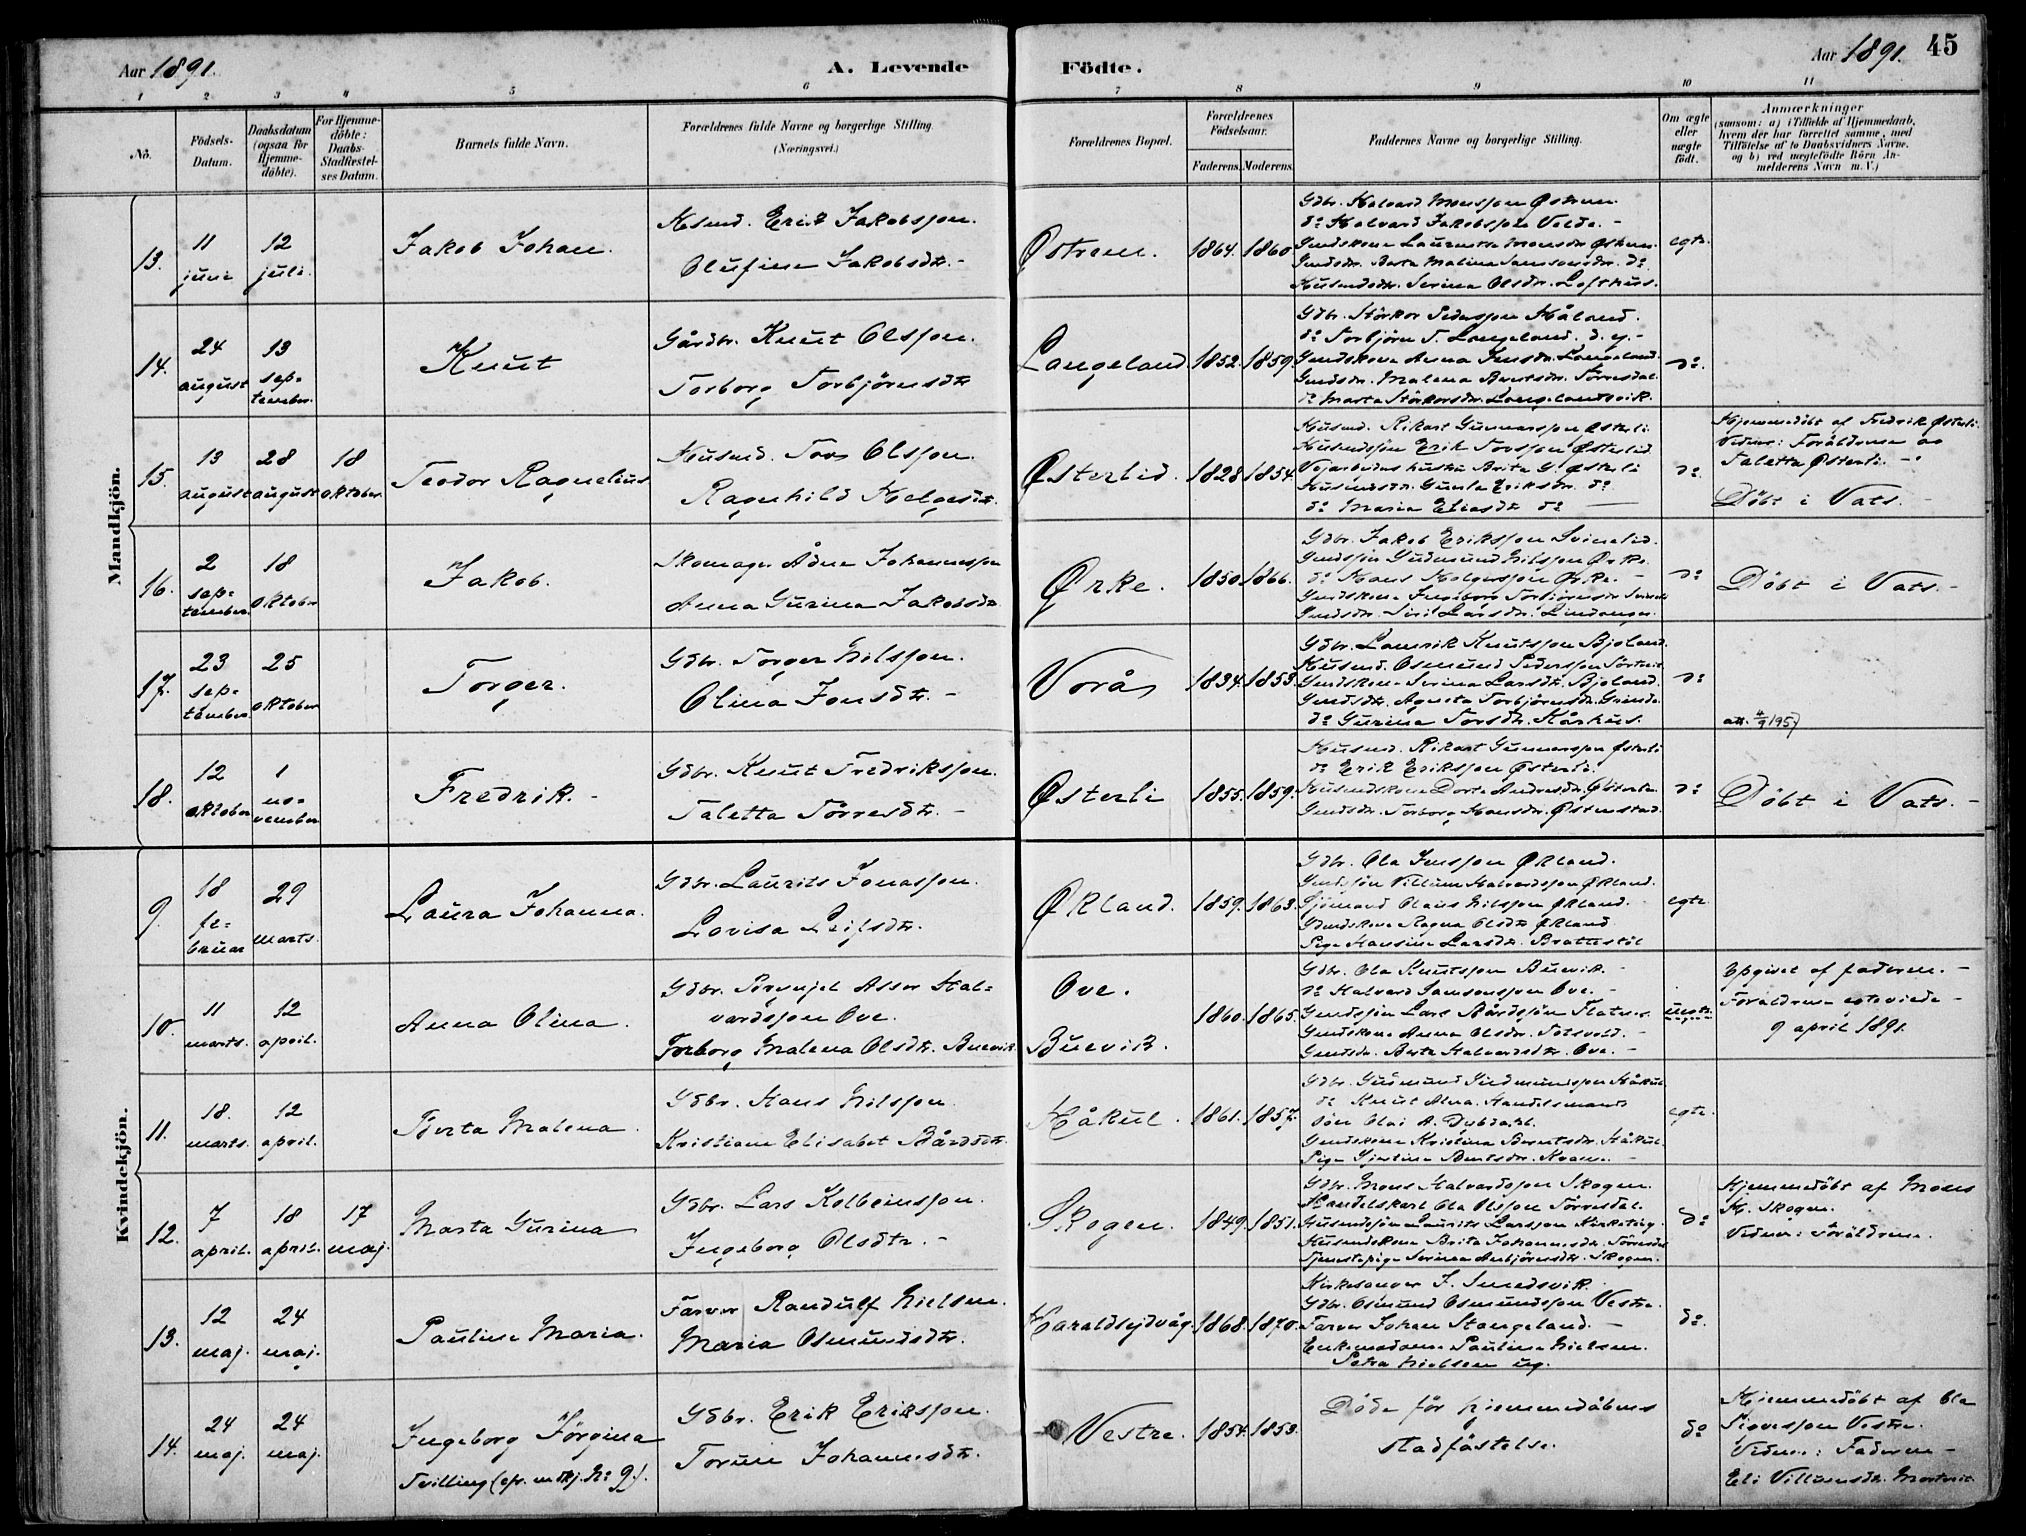 Aar 1891.
A. Levende Födte.
Aar 1891. 45
1 2 3 4 5 6 7 8 9 10 11
No.
Födsels-Datum.
Daabsdatum (ogsaa for Hjemme-döbte).
For Hjemme-döbte: Daabs-Stadfæstel-ses Datum.
Barnets fulde Navn.
Forældrenes fulde Navne og borgerlige Stilling (Næringsvei.)
Forældrenes Bopæl.
Forældrenes Födselsaar.
Faderens. Moderens.
Faddernes Navne og borgerlige Stilling.
Om ægte eller uægte födt.
Anmærkninger
(saasom: a) i Tilfælde af Hjemmedaab,
hvem der har forrettet samme, med
Tilföielse af to Daabsvidners Navne,
og b) ved uægtefödte Börn An-
melderens Navn m.V.)
Mandkjön.
13. 11 juni 12 juli. Jakob Johan.
Husmd. Erik Jakobsson.
Olufine Jakobsdtr. -
Østrem. 1864. 1860
Gdbr. Halvard Monsson Østrem.
do Halvard Jakobsson Valde. -
Gmdskone Laurentse Monsdtr. Østrem.
Gmdsdtr. Berta Malina Samsonsdtr. do
Husmdsdtr. Serina Olsdtr. Lofthus.
egte.
14. 24 august 13 sep-tember. Knut
Gårdbr. Knut Olsson.
Torborg Torbjørnsdtr.
Langeland 1852. 1859.
Gdbr. Störkor Pedersson Håland.
do Torbjörn T. Langeland. d. y. -
Gmdskone Anna Jensdtr. Langeland.
Gmdsdtr. Malena Bentsdtr. Törresdal.
do Marta Störkorsdtr. Langelandsvik.
do.
15. 13 august 28 august 18 oktober. Teodor Ragnelius
Husmd. Tore Olsson.
Ragnhild Helgesdtr.
Østerlid. 1828 1854.
Husmd. Rikart Gunnarsson Østerli
Husmdssön Erik Torsson Østerlid
Vejarbeiders hustru Brita G. Østerli
Husmdsdtr. Gunla Eriksdtr. do
do Maria Eliasdtr. do
do.
Hjemmedöbt af Fredrik Østerli.
Vidner: Foräldrene og
Taletta Østerli. -
Döbt i Vats. -
16. 2 sep-tember 18 oktober Jakob.
Skomager Ådne Johannesson
Anna Gurina Jakobsdtr.
Ørke. 1850 1866.
Gdbr. Jakob Eriksson Svinalid.
Gmdssön Gudmund Nilsson Ørke.
do Hans Holgersson Ørke. -
Gmdskone Ingeborg Torbjörnsdtr. Svinali
Gmdsdtr. Siri Larsdtr. Lindanger.
do
Döbt i Vats. -
17. 23 sep-tember. 25 oktober Torger.
Gdbr. Torger Nilsson.
Olina Jonsdtr. -
Vorås 1834. 1853.
Gdbr. Lamrik Knutsson Bjoland.
Husmd. Osmund Pedersson
Gmdskone Serina Larsdtr. Bjoland.
Gmdsdtr. Agneta Torbjörnsdtr. Grinde.
do Gurina Torsdtr. Kårhus.
do
att. 4/9 1957
18. 12 oktober 1 no-vember Fredrik. -
Gdbr. Knut Fredriksson.
Taletta Törresdtr. -
Østerli 1855. 1859.
Husmd. Rikart Gunnarsson Østerli
do Erik Eriksson Østerli.
Husmdskone Dorte Andersdtr. Østerli
Gmdsdtr. Torborg Hansdtr. Østenstad.
do
Döbt i Vats. -
Kvindekjön.
9. 18 fe-bruar 29 marts. Laura Johanna.
Gdbr. Laurits Jonasson.
Lovisa Leifsdtr.
Økland. 1859. 1863.
Gdbr. Ola Jensson Økland.
Gmdssön Villum Halvardsson Økland.
Sjömand Olaus Nilsson Økland.
Gmdskone Ragna Olsdtr. Økland
Pige Hansine Larsdtr. Brattestöl
egte.
10. 11 marts. 12 april. Anna Olina.
Gdbr. Törgujel Assor Hal-
vardsson Ove.
Torborg Malena Olsdtr. Buevik.
Ove.
Buevik. 1860. 1865.
Gdbr. Ola Knutsson Buevik. -
do Halvard Samsonsson Ove. -
Gmdssön Lars Bårdssön Flatnes.
Gmdskone Anna Olsdtr. Totsvold. -
Gmdsdtr. Berta Halvardsdtr. Ove. -
uegte.
Opgivet af faderen. -
Foräldrene egteviede -
9 april 1891.
11. 18. marts. 12 april. Berta Malena.
Gdbr. Hans Nilsson.
Kristiane Elisabet Bårdsdtr.
Håkul. 1861. 1857.
Gdbr. Gudmund Gudmundsson Håkul
do Knut Alna. Handelsmands
sön Olai A. Dybdahl.
Gmdskone Kristina Berentsdtr. Håkul.
Pige Gjertine Bentsdtr. Kvame. -
egte.
12. 7 april. 18 april. 17 maj. Marta Gurina
Gdbr. Lars Kolbeinsson.
Ingeborg Olsdtr. -
Skogen. 1849. 1851.
Gdbr. Mons Halvardsson Skogen.
Handelskarl Ola Olsson Törresdal.
Husmdssön Laurits Larsson Kirketeig.
Husmdskone Brita Johannesdtr. Törresdal
Tjenstepige Serina Anbjörnsdtr. Skogen.
do
Hjemmedöbt af Mons
H. Skogen.
Vidner: Foräldrene.
13. 12 maj. 24 maj. Pauline Maria.
Farver Randulf Nielsen.
Maria Osmundsdtr.
Haraldsejdvåg. 1868. 1870.
Kirkesanger J. Smedsvik.
Gdbr. Osmund Osmundsson Vestre.
Farver Johan Stangeland. -
Enkemadame Pauline Nielsen.
Petra Nielsen ug.
do.
14. 24 maj. 24 maj. Ingeborg Jörgina
Tvilling (cfr. mdkj. No 9).
Gdbr. Erik Eriksson.
Torine Johannesdtr.
Vestre. 1854. 1853.
Döde för hjemmedåbens
stadfästelse.
do
Hjemmedöbt af Ola
Sjovesson Vestre.
Vidner: Faderen -
Eli Villumsdtr.